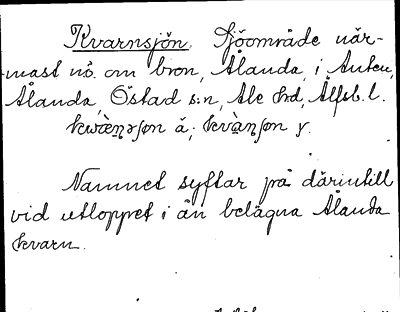 Kvarnsjön. Sjöområde när-
mast nö. om bron, Ålanda, i Anten,
Ålanda, Östad s:n, Ale hd, Älfsb. l.
Namnet syftar på därintill
vid utloppet i ån belägna Ålanda
kvarn.